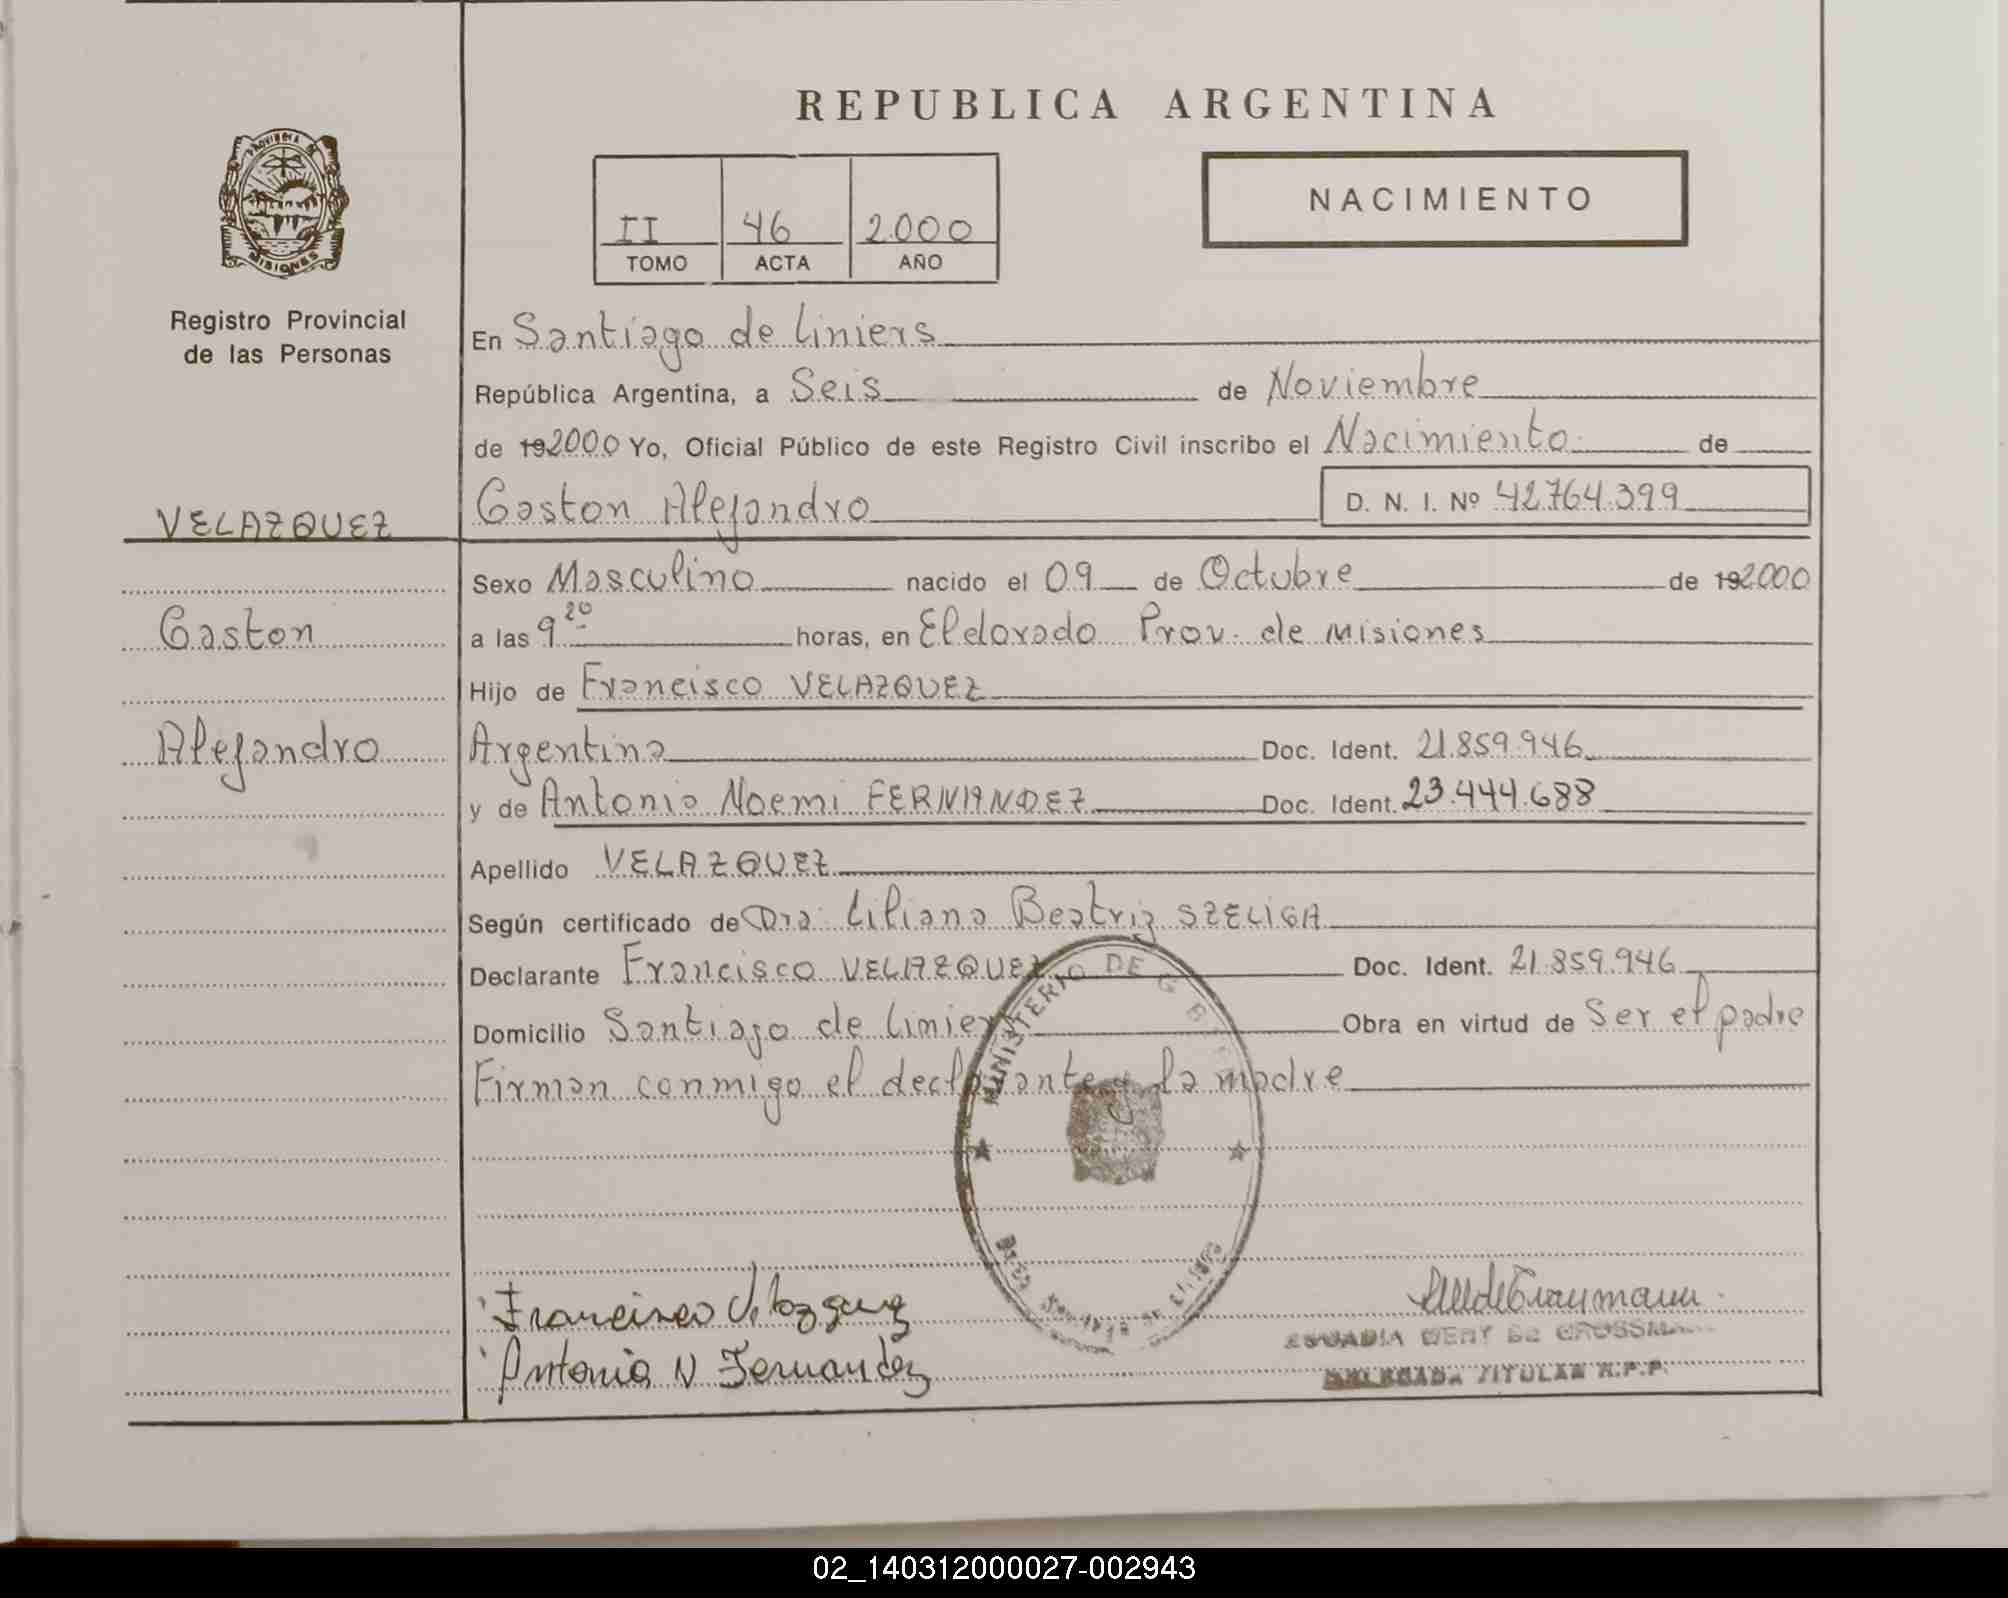 REPUBLICA ARGENTINA
PROVINCIA DE
MISIONES
Registro Provincial
de las Personas
II 46 2.000
TOMO ACTA AÑO
NACIMIENTO
En Santiago de Liniers
República Argentina, a Seis de Noviembre
de 192000 Yo, Oficial Público de este Registro Civil inscribo el Nacimiento de
VELAZQUEZ
Gaston Alejandro D. N. I. Nº 42.764.399
Sexo Masculino nacido el 09 de Octubre de 192000
Gaston
a las 9 20 horas, en Eldorado Prov. de Misiones
Hijo de Francisco VELAZQUEZ
Alejandro
Argentina Doc. Ident. 21.859.946
y de Antonia Noemi FERNANDEZ Doc. Ident. 23.444.688
Apellido VELAZQUEZ
Según certificado de Dra. Liliana Beatriz SZELIGA
Declarante Francisco VELAZQUEZ Doc. Ident. 21.859.946
Domicilio Santiago de Liniers Obra en virtud de Ser el padre
Firman conmigo el declarante y la madre
MINISTERIO DE
Francisco Velazquez
Antonia N Fernandez
DELEGADA TITULAR R.P.P.
02_140312000027-002943